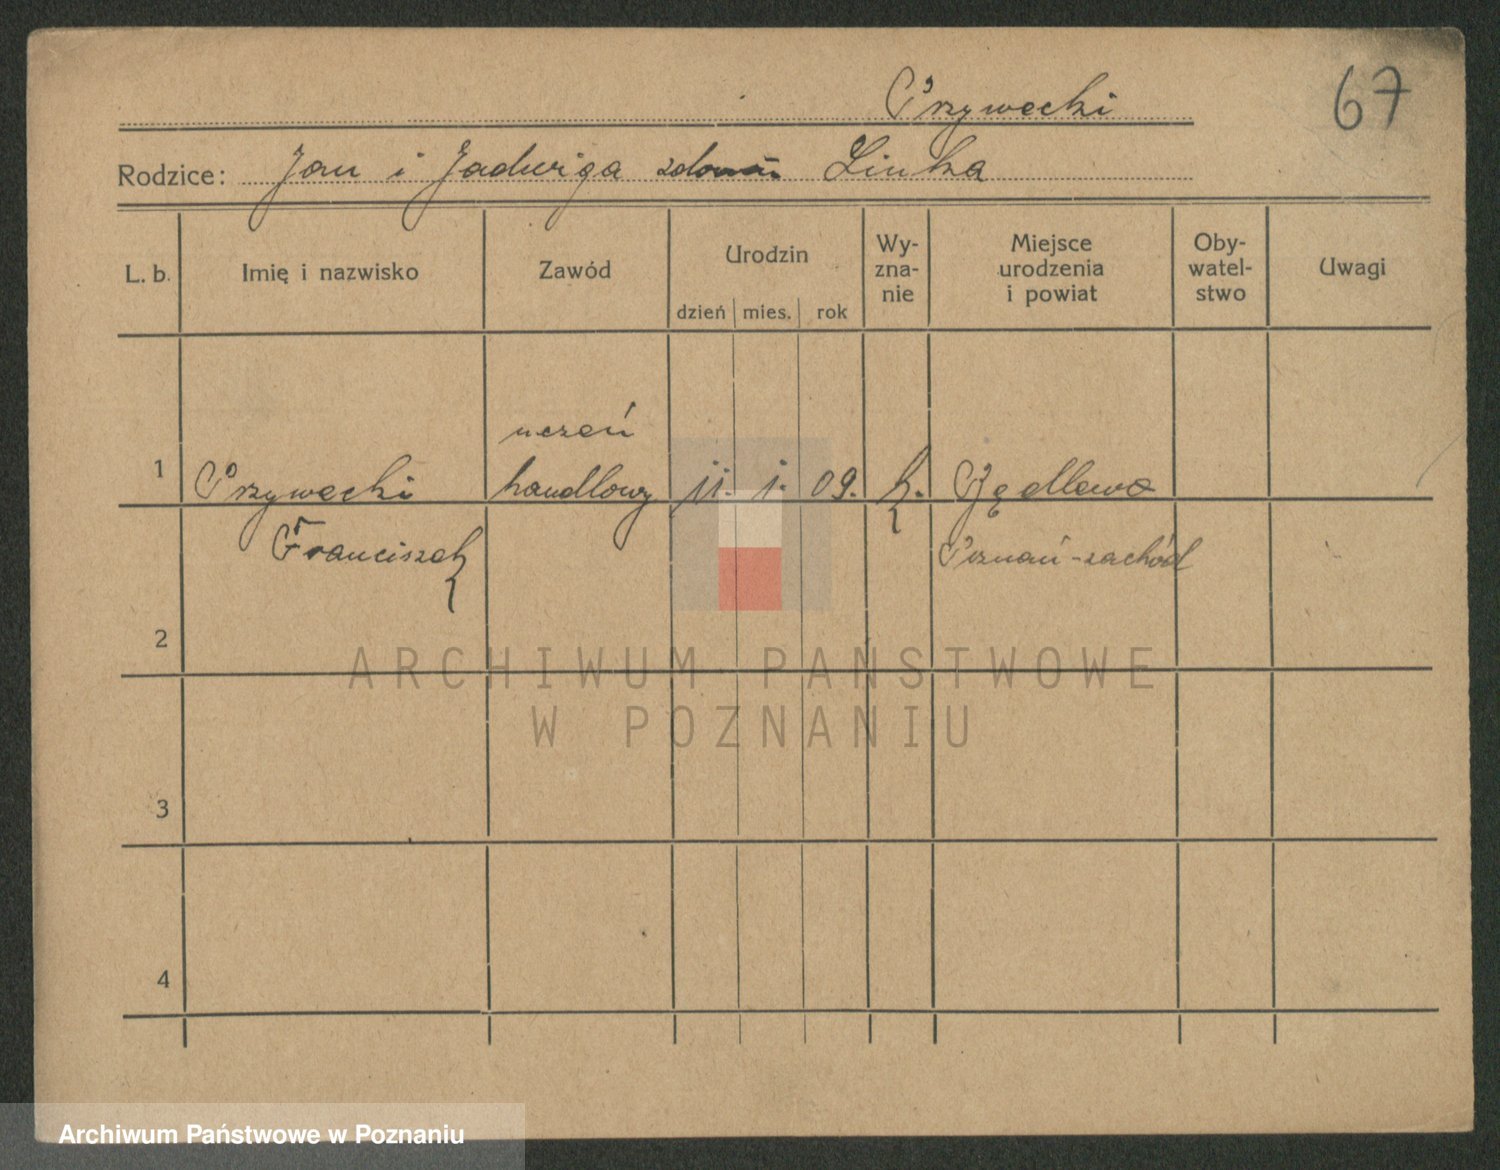 67
Przywecki
Rodzice: Jan i Jadwiga zdomu Linka
L. b. Imię i nazwisko Zawód Urodzin dzień mies. rok Wy-zna-nie Miejsce urodzenia i powiat Oby-watel-stwo Uwagi
uczeń
1 Przywecki handlowy 11. 1. 09. k.
Franciszek Poznań-zachód
2
ARCHIWUM PAŃSTWOWE
W POZNANIU
3
4
Archiwum Państwowe w Poznaniu